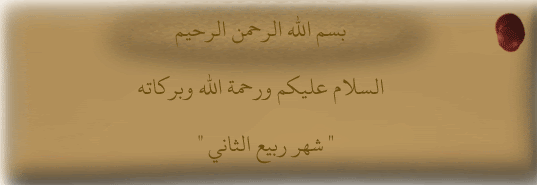 بسم الله الرحمن الرحيم
السلام عليكم ورحمة الله وبركاته
" شهر ربيع الثاني "